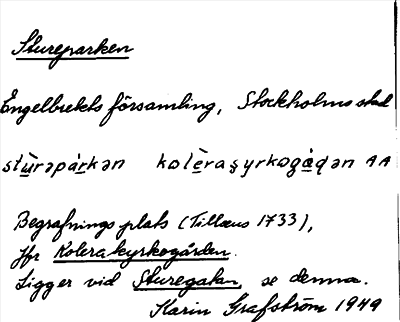 Stureparken
Engelbrekts församling, Stockholms stad
stùrəpàrkən kolèraşyrkogàdən AA
Begrafnings plats (Tillæus 1733),
Jfr Kolerakyrkogården.
Ligger vid Sturegatan, se denna.
Karin Grafström 1949